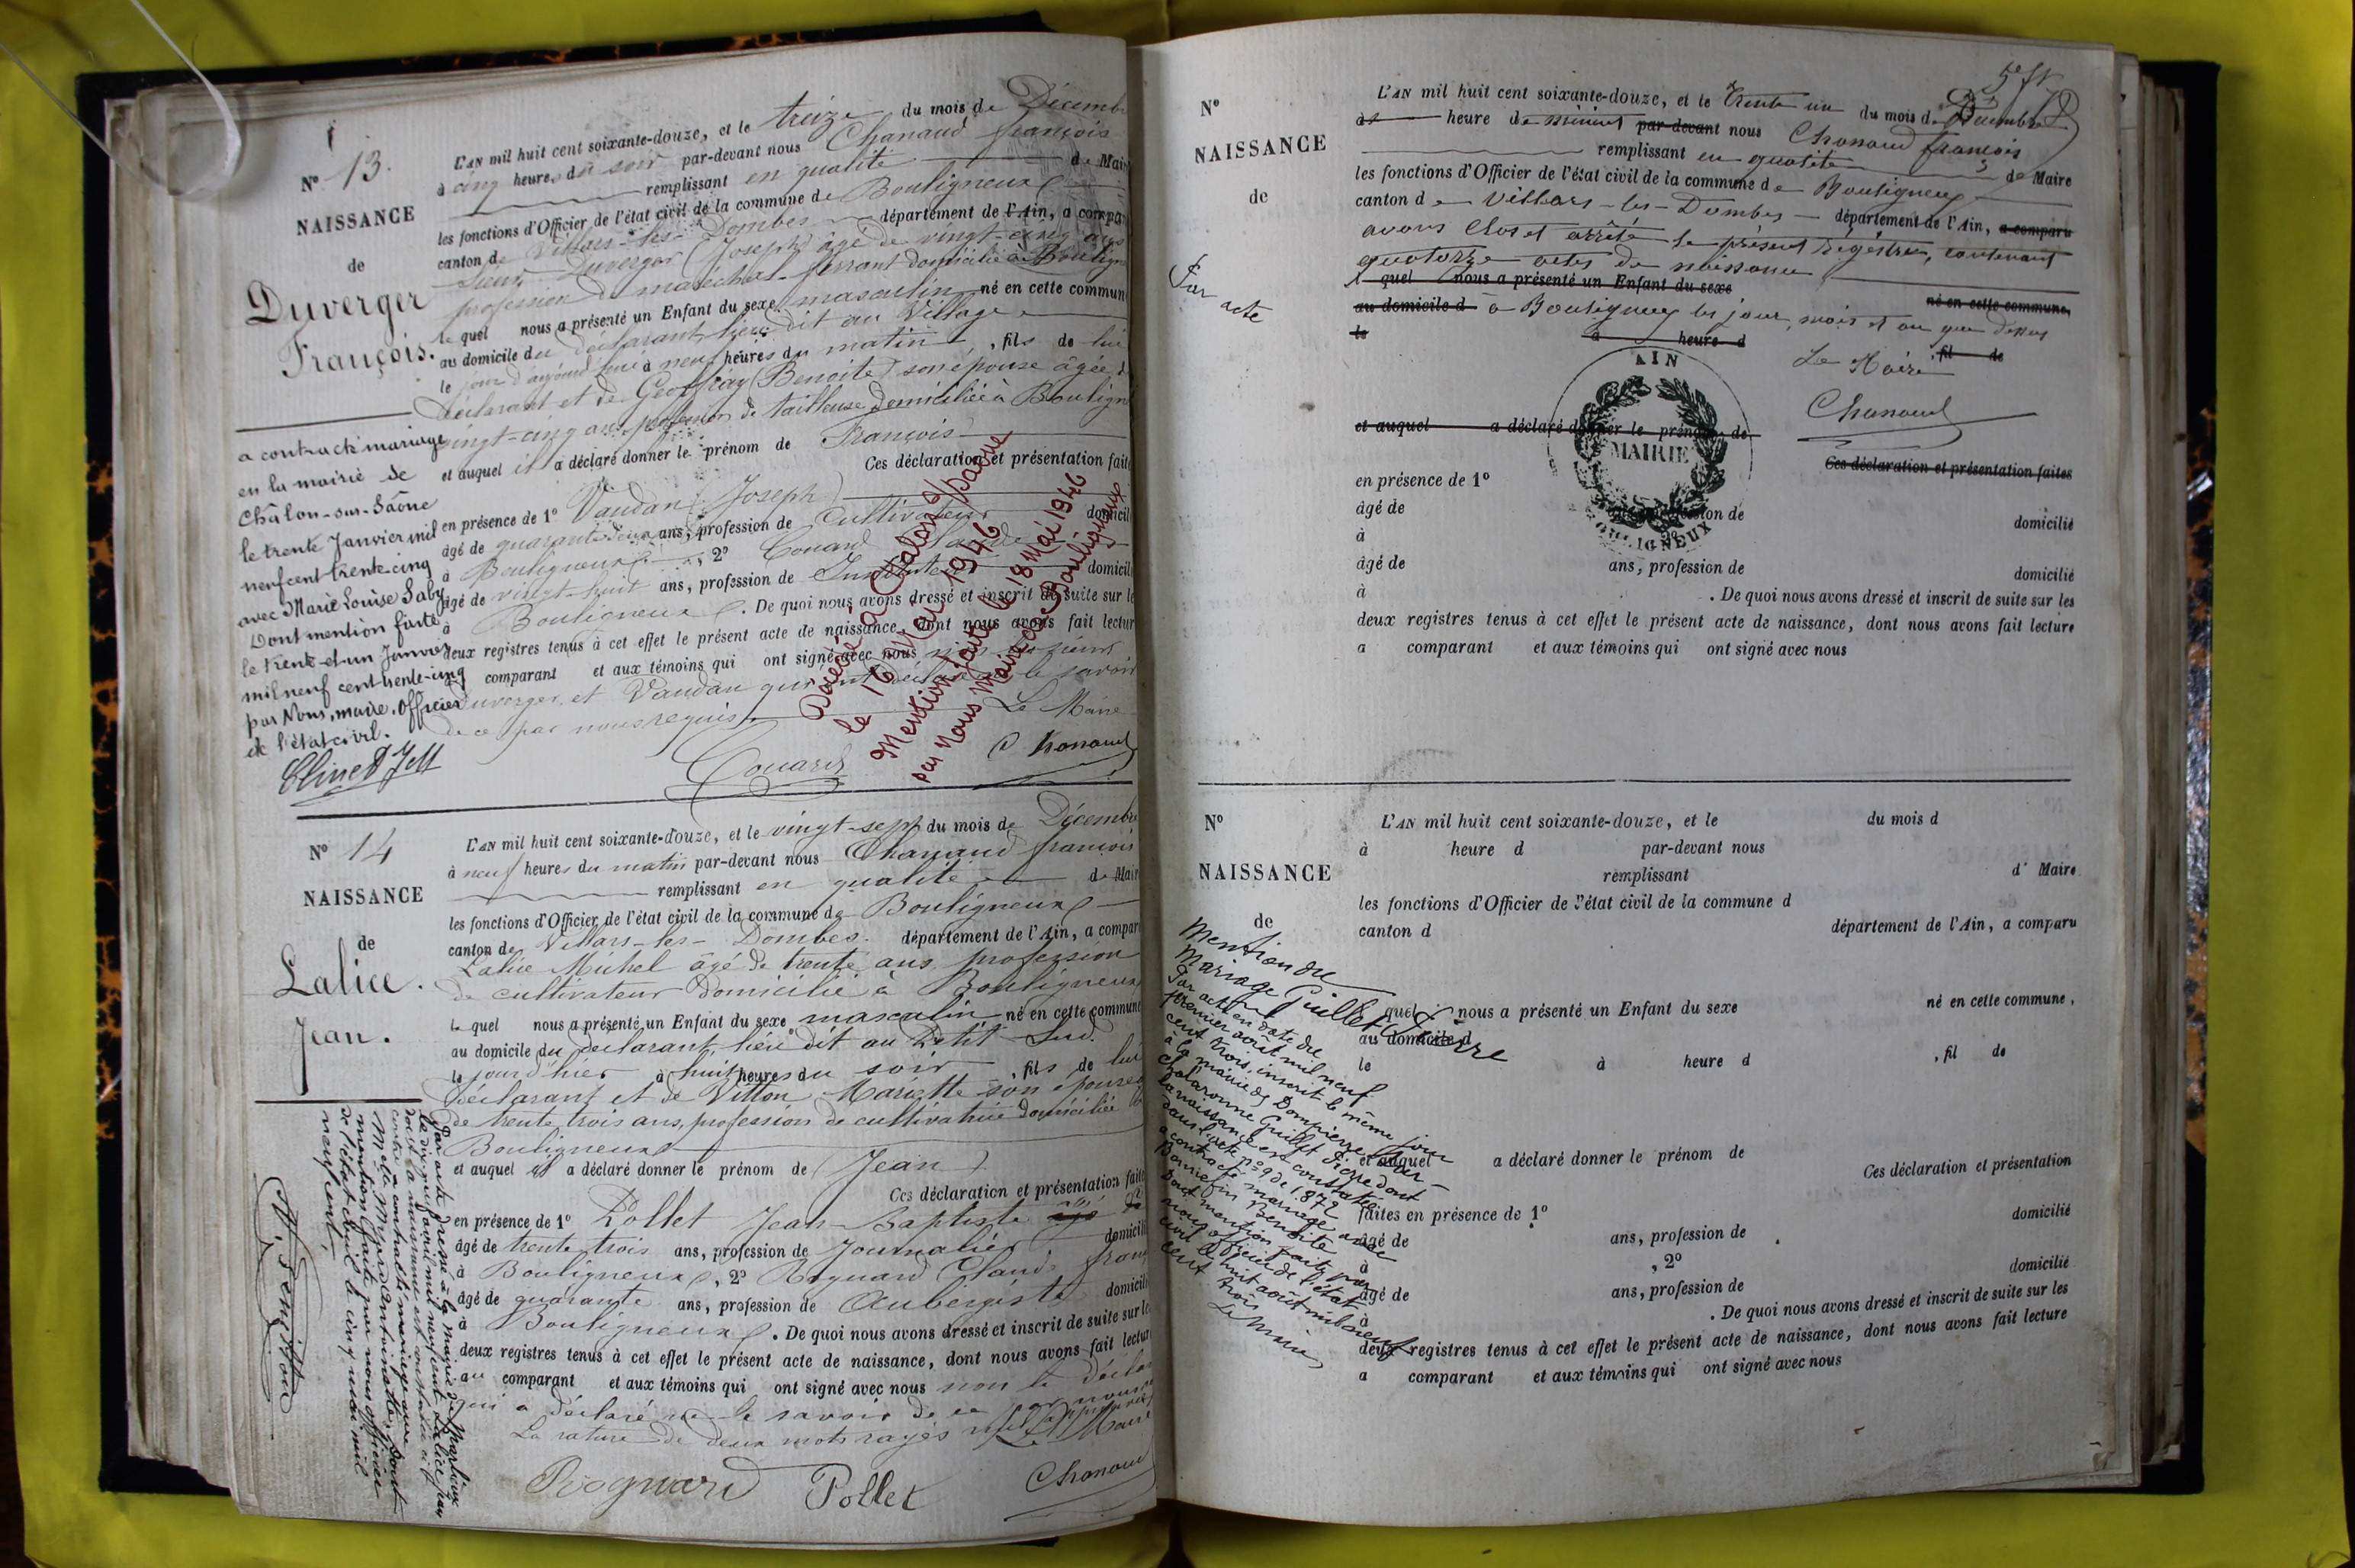 N° 13.
NAISSANCE
de
Duverger
François.
a contracté mariage
en la mairie de
Châlon-sur-Saône
le trente Janvier mil
neuf cent trente cinq
avec Marie Louise Saby
Dont mention faite
le trente-et-un Janvier
mil neuf cent trente-cinq
par Nous, maire, Officier
de l'état civil.
L'AN mil huit cent soixante-douze, et le treize du mois de Décemb
à cinq heures du soir par-devant nous Chanaud françois
remplissant en qualité de Mair
les fonctions d'Officier de l'état civil de la commune de Bouligneux
canton de Villars-les-Dombes département de l'Ain, a compa
sieur Duverger (Joseph) âgé de vingt-cinq ans
profession de maréchal-ferrant domicilié à Bouligne
lequel nous a présenté un Enfant du sexe masculin né en cette commun
au domicile du déclarant lieu dit au Village
le jour d'aujourd'hui à neuf heures du matin, fils de lui
déclarant et de Geoffray (Benoite) son épouse âgée d
vingt-cinq ans profession de tailleuse domiciliée à Bouligne
et auquel il a déclaré donner le prénom de François
Ces déclaration et présentation faite
en présence de 1° Vaudan (Joseph)
âgé de quarante deux ans, profession de Cultivateur domicil
à Bouligneux, 2° Couard
âgé de vingt-huit ans, profession de Instituteur domicil
à Bouligneux. De quoi nous avons dressé et inscrit de suite sur le
deux registres tenus à cet effet le présent acte de naissance, dont nous avons fait lectur
comparant et aux témoins qui ont signé avec nous non les sieurs
Duverger et Vaudan qui ont déclaré ne le savoir
de ce par nous requis.
Le Maire
Couard
Chanaud
Décédé à Chalon s/ Saône
le 16 Mai 1946
Mention faite le 18 Mai 1946
par Nous Maire de Bouligneux
N° 14
NAISSANCE
de
Lalice.
Jean.
Par acte dressé à la mairie de Marlieux
le dix neuf avril mil neuf cent Lalice Jean
dont la naissance est constatée ci
contre a contracté mariage avec
Melle Mjard Antoinette, Dont
mention faite par nous officier
de l'état civil le cinq mai mil
neuf cent.
L'AN mil huit cent soixante-douze, et le vingt-sept du mois de Décembre
à neuf heures du matin par-devant nous Chanaud françois
remplissant en qualité de Mair
les fonctions d'Officier de l'état civil de la commune de Bouligneux
canton de Villars-les-Dombes. département de l'Ain, a compar
Lalice Michel âgé de trente ans profession
de cultivateur domicilié à Bouligneux
lequel nous a présenté un Enfant du sexe masculin né en cette commune
au domicile du déclarant lieu dit au Petit-Sud.
le jourd'hier à huit heures du soir, fils de lui
déclarant et de Vitton Mariette son épouse
de trente trois ans, profession de cultivatrice domiciliée
Bouligneux
et auquel il a déclaré donner le prénom de (Jean)
Ces déclaration et présentation faite
en présence de 1° Pollet Jean-Baptiste
âgé de trente trois ans, profession de Journalier domicili
à Bouligneux, 2° Rognard Claude franç
âgé de quarante ans, profession de Aubergiste domicili
à Bouligneux. De quoi nous avons dressé et inscrit de suite sur le
deux registres tenus à cet effet le présent acte de naissance, dont nous avons fait lectur
au comparant et aux témoins qui ont signé avec nous non le déclar
qui a déclaré ne le savoir de ce par nous
La rature de deux mots rayés nuls approuvés
Le Maire
Rognard Pollet Chanaud
N°
NAISSANCE
de
Sur acte
L'AN mil huit cent soixante-douze, et le trente un du mois de Décembre
à heure de minuit par-devant nous Chanaud françois
remplissant en qualité de Maire
les fonctions d'Officier de l'état civil de la commune de Bouligneux
canton de Villars-les-Dombes département de l'Ain, a comparu
avons clos et arrêté le présent régistre, contenant
quatorze actes de naissance
l quel nous a présenté un Enfant du sexe né en cette commune,
au domicile d à Bouligneux les jour, mois et an que dessus
le à heure d , fil de
Le Maire
Chanaud
AIN
MAIRIE
et auquel a déclaré donner le prénom de
Ces déclaration et présentation faites
en présence de 1°
âgé de ans, profession de domicilié
à , 2°
âgé de ans, profession de domicilié
à . De quoi nous avons dressé et inscrit de suite sur les
deux registres tenus à cet effet le présent acte de naissance, dont nous avons fait lecture
a comparant et aux témoins qui ont signé avec nous
N°
NAISSANCE
de
Mention du
Mariage Guillet Pierre
Par acte en date du
premier août mil neuf
cent trois, inscrit le même jour
à la mairie de Dompierre sur
Chalaronne Guillet Pierre dont
la naissance est constatée
dans l'acte n° 9 de 1872
a contracté mariage avec
Bonnefin Benoite
Dont mention faite par
nous officier de l'état
civil le huit août mil neuf
cent trois
Le Maire
L'AN mil huit cent soixante-douze, et le du mois d
à heure d par-devant nous
remplissant d' Maire
les fonctions d'Officier de l'état civil de la commune d
canton d département de l'Ain, a comparu
quel nous a présenté un Enfant du sexe né en cette commune,
au domicile d
le à heure d , fil de
et auquel a déclaré donner le prénom de
Ces déclaration et présentation
faites en présence de 1°
âgé de ans, profession de domicilié
à , 2°
âgé de ans, profession de domicilié
à . De quoi nous avons dressé et inscrit de suite sur les
deux registres tenus à cet effet le présent acte de naissance, dont nous avons fait lecture
a comparant et aux témoins qui ont signé avec nous